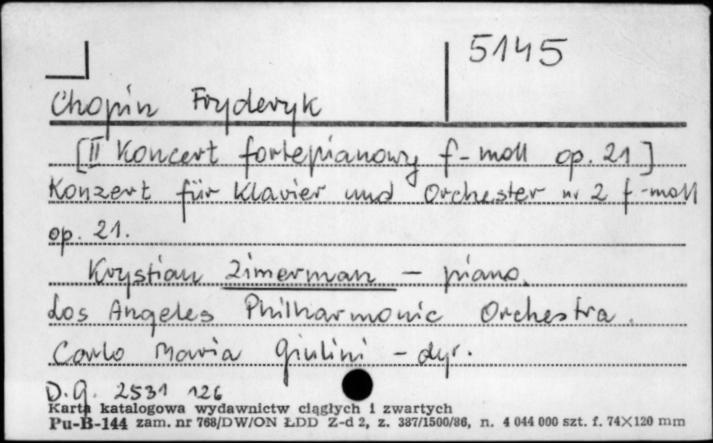 5145
Chopin Fryderyk
[II Koncert fortepianowy f-moll op. 21]
Konzert für Klavier und Orchester nr 2 f-moll
op. 21.
Krystian Zimerman – piano.
Los Angeles Philharmonic Orchestra.
Carlo Maria Giulini – dyr.
D.G. 2531 126
Karta katalogowa wydawnictw ciągłych i zwartych
Pu-B-144 zam. nr 768/DW/ON ŁDD Z-d 2, z. 387/1500/86, n. 4 044 000 szt. f. 74×120 mm